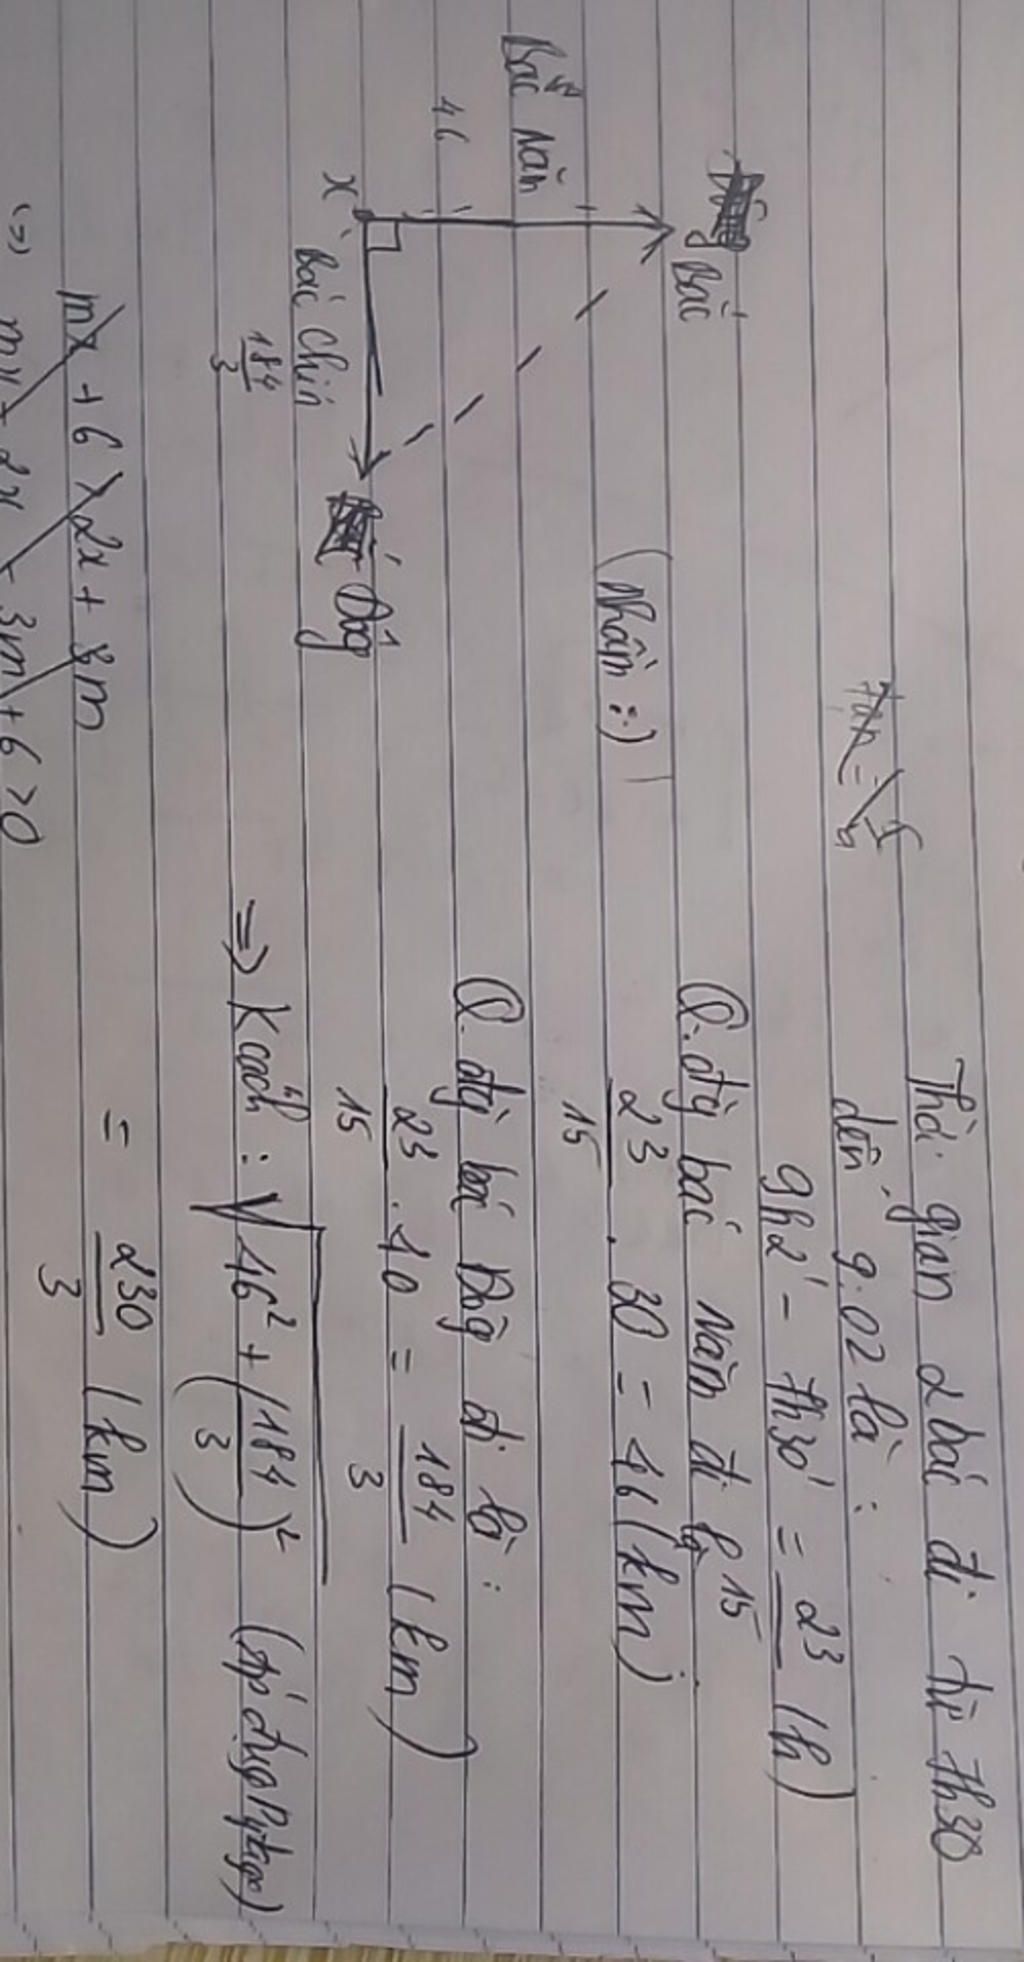 Thời gian 2 bác đi từ 7h30
đến 9.02 là :
9h2' - 7h30' = 23/15 (h)
Q.đg bác Năm đi là
23/15 . 30 = 46 (km)
Q. đg bác Đôg đi là :
23/15 . 40 = 184/3 (km)
=> K cách : √46² + (184/3)² (áp dụg Pytago)
= 230/3 (km)
tan =
Bắc
Bác Năm
46
x
Bác Chín
184/3
Đôg
(Nhầm :-)
mx + 6 > 2x + 3m
<=> mx - 2x - 3m + 6 > 0